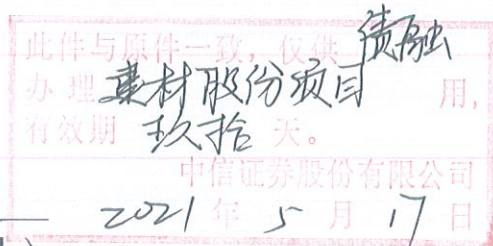 此件与原件一致，仅供 债融
办理 建材股份项目 用，
有效期 玖拾 天。
中信证券股份有限公司
2021 年 5 月 17 日